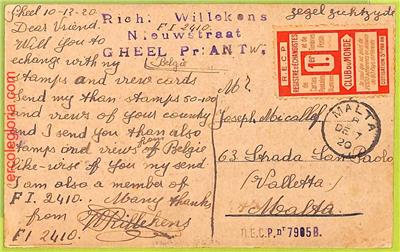 Gheel 10-12-20
Dear Vriend.
Will You to
echange with my
stamps and view cards
Send my than stamps 50-100
and views of your country
and I send You than also
stamps and views from Belgie
like-wise of You my send
I am also a member of
F I. 2410. Many thanks
from
F I 2410.
Rich: Willekens
F I 2410.
Nieuwstraat
GHEEL Pr: ANTW.
(Belgie
zegel zichtzyde
R.E.C.P.
CLUB DU MONDE
Mr
Joseph Micallef
63. Strada San Paolo
(Valletta)
Malta
MALTA
DE
20
R.E.C.P. nr 7985B.